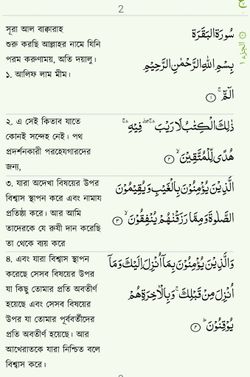 2
সূরা আল বাক্বারাহ
শুরু করছি আল্লাহর নামে যিনি
পরম করুণাময়, অতি দয়ালু।
১. আলিফ লাম মীম।
سُوْرَةُ الْبَقَرَةِ
بِسْمِ اللهِ الرَّحْمٰنِ الرَّحِيْمِ
الٓمّٓ ۚ ١
২. এ সেই কিতাব যাতে
কোনই সন্দেহ নেই। পথ
প্রদর্শনকারী পরহেযগারদের
জন্য,
ذٰلِكَ الْكِتٰبُ لَا رَيْبَ ۛ فِيْهِ ۛ
هُدًى لِّلْمُتَّقِيْنَ ۙ ٢
৩. যারা অদেখা বিষয়ের উপর
বিশ্বাস স্থাপন করে এবং নামায
প্রতিষ্ঠা করে। আর আমি
তাদেরকে যে রুযী দান করেছি
তা থেকে ব্যয় করে
الَّذِيْنَ يُؤْمِنُوْنَ بِالْغَيْبِ وَيُقِيْمُوْنَ
الصَّلٰوةَ وَمِمَّا رَزَقْنٰهُمْ يُنْفِقُوْنَ ۙ ٣
৪. এবং যারা বিশ্বাস স্থাপন
করেছে সেসব বিষয়ের উপর
যা কিছু তোমার প্রতি অবতীর্ণ
হয়েছে এবং সেসব বিষয়ের
উপর যা তোমার পূর্ববর্তীদের
প্রতি অবতীর্ণ হয়েছে। আর
আখেরাতকে যারা নিশ্চিত বলে
বিশ্বাস করে।
وَالَّذِيْنَ يُؤْمِنُوْنَ بِمَآ اُنْزِلَ اِلَيْكَ وَمَآ
اُنْزِلَ مِنْ قَبْلِكَ ۚ وَبِالْاٰخِرَةِ هُمْ
يُوْقِنُوْنَ ۗ ٤
الجزء ١